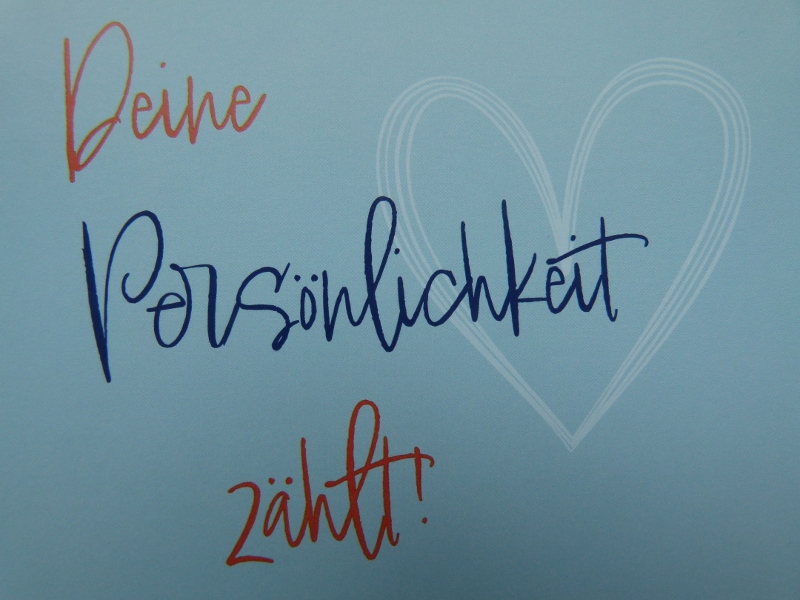 Deine
Persönlichkeit
zählt!